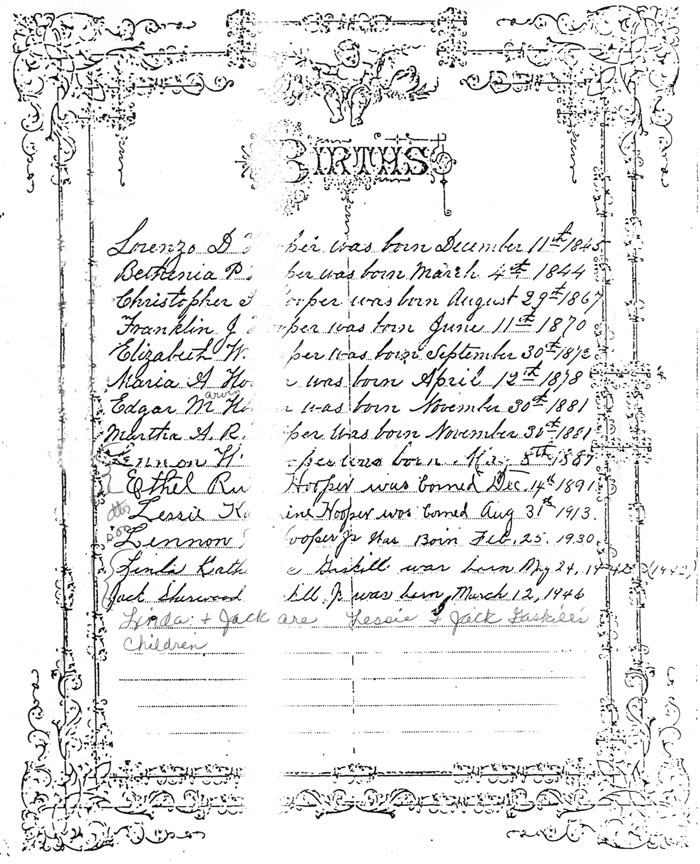 BIRTHS
Lorenzo D Hooper was born December 11th 1845
Bethenia P per was born March 4th 1844
Christopher ooper was born August 29th 1867
Franklin J Hooper was born June 11th 1870
Elizabeth W. per was born September 30th 1872
Maria A Ho r was born April 12th 1878
arvin
Edgar M Ho r was born November 30th 1881
Martha A. R. per was born November 30th 1881
Lennon W per was born May 8th 1887
Ethel Ru Hooper was borned Dec. 14th 1891
Lessie Ka ine Hooper was borned Aug 31st 1913.
son Lennon ooper Jr Was Born Feb. 25. 1930.
Linda Kathe e Gaskill was born May 24, 1942 (1942)
Jack Sherwood kill Jr was born March 12, 1946
Linda + Jack are Lessie + Jack Gaskill's
Children